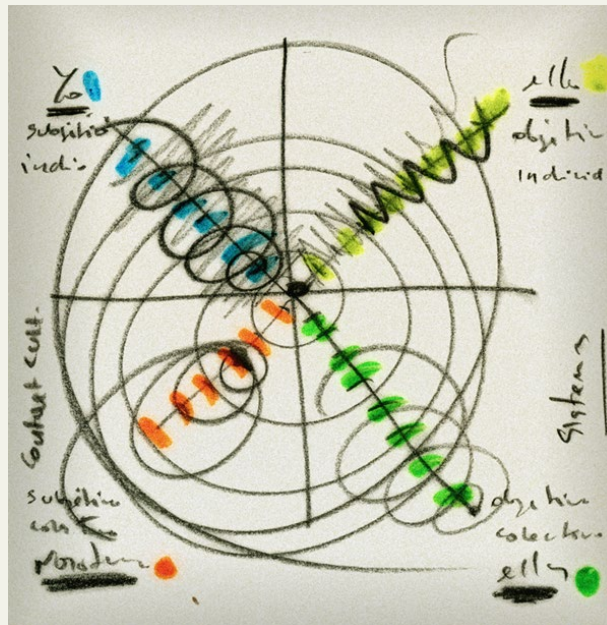 Yo
subjetivo
indiv.
ello
objetivo
individ
Context Cult.
Sistemas
subjetivo
colectivo
Nosotros
objetivo
colectivo
ellos